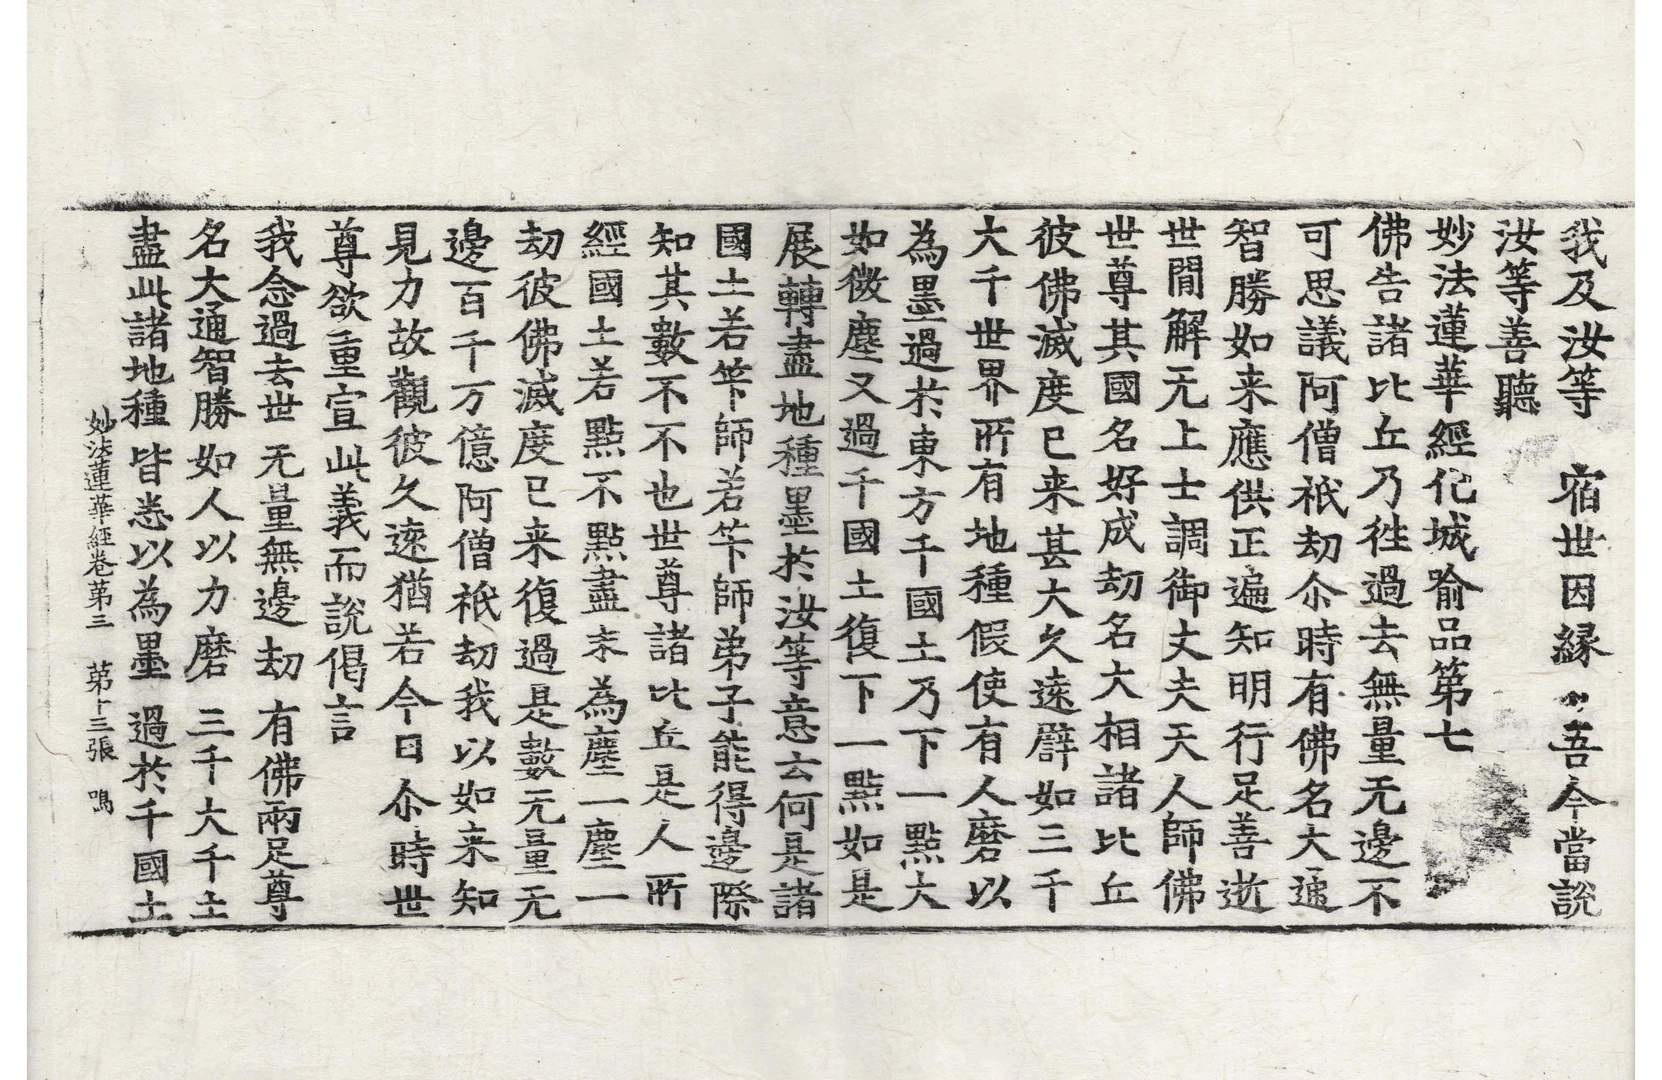 我及汝等　宿世因縁　吾今當說
汝等善聽
妙法蓮華經化城喻品第七
佛告諸比丘乃徃過去無量无邊不
可思議阿僧祇劫尒時有佛名大通
智勝如来應供正遍知明行足善逝
世間解无上士調御丈夫天人師佛
世尊其國名好成劫名大相諸比丘
彼佛滅度已来甚大久遠譬如三千
大千世界所有地種假使有人磨以
為墨過於東方千國土乃下一點大
如微塵又過千國土復下一點如是
展轉盡地種墨於汝等意云何是諸
國土若筭師若筭師弟子能得邊際
知其數不不也世尊諸比丘是人所
經國土若點不點盡末為塵一塵一
劫彼佛滅度已来復過是數无量无
邊百千万億阿僧祇劫我以如来知
見力故觀彼久遠猶若今日尒時世
尊欲重宣此義而說偈言
我念過去世　无量無邊劫　有佛兩足尊
名大通智勝　如人以力磨　三千大千土
盡此諸地種　皆悉以為墨　過於千國土
妙法蓮華経卷第三　第十三張　鳴